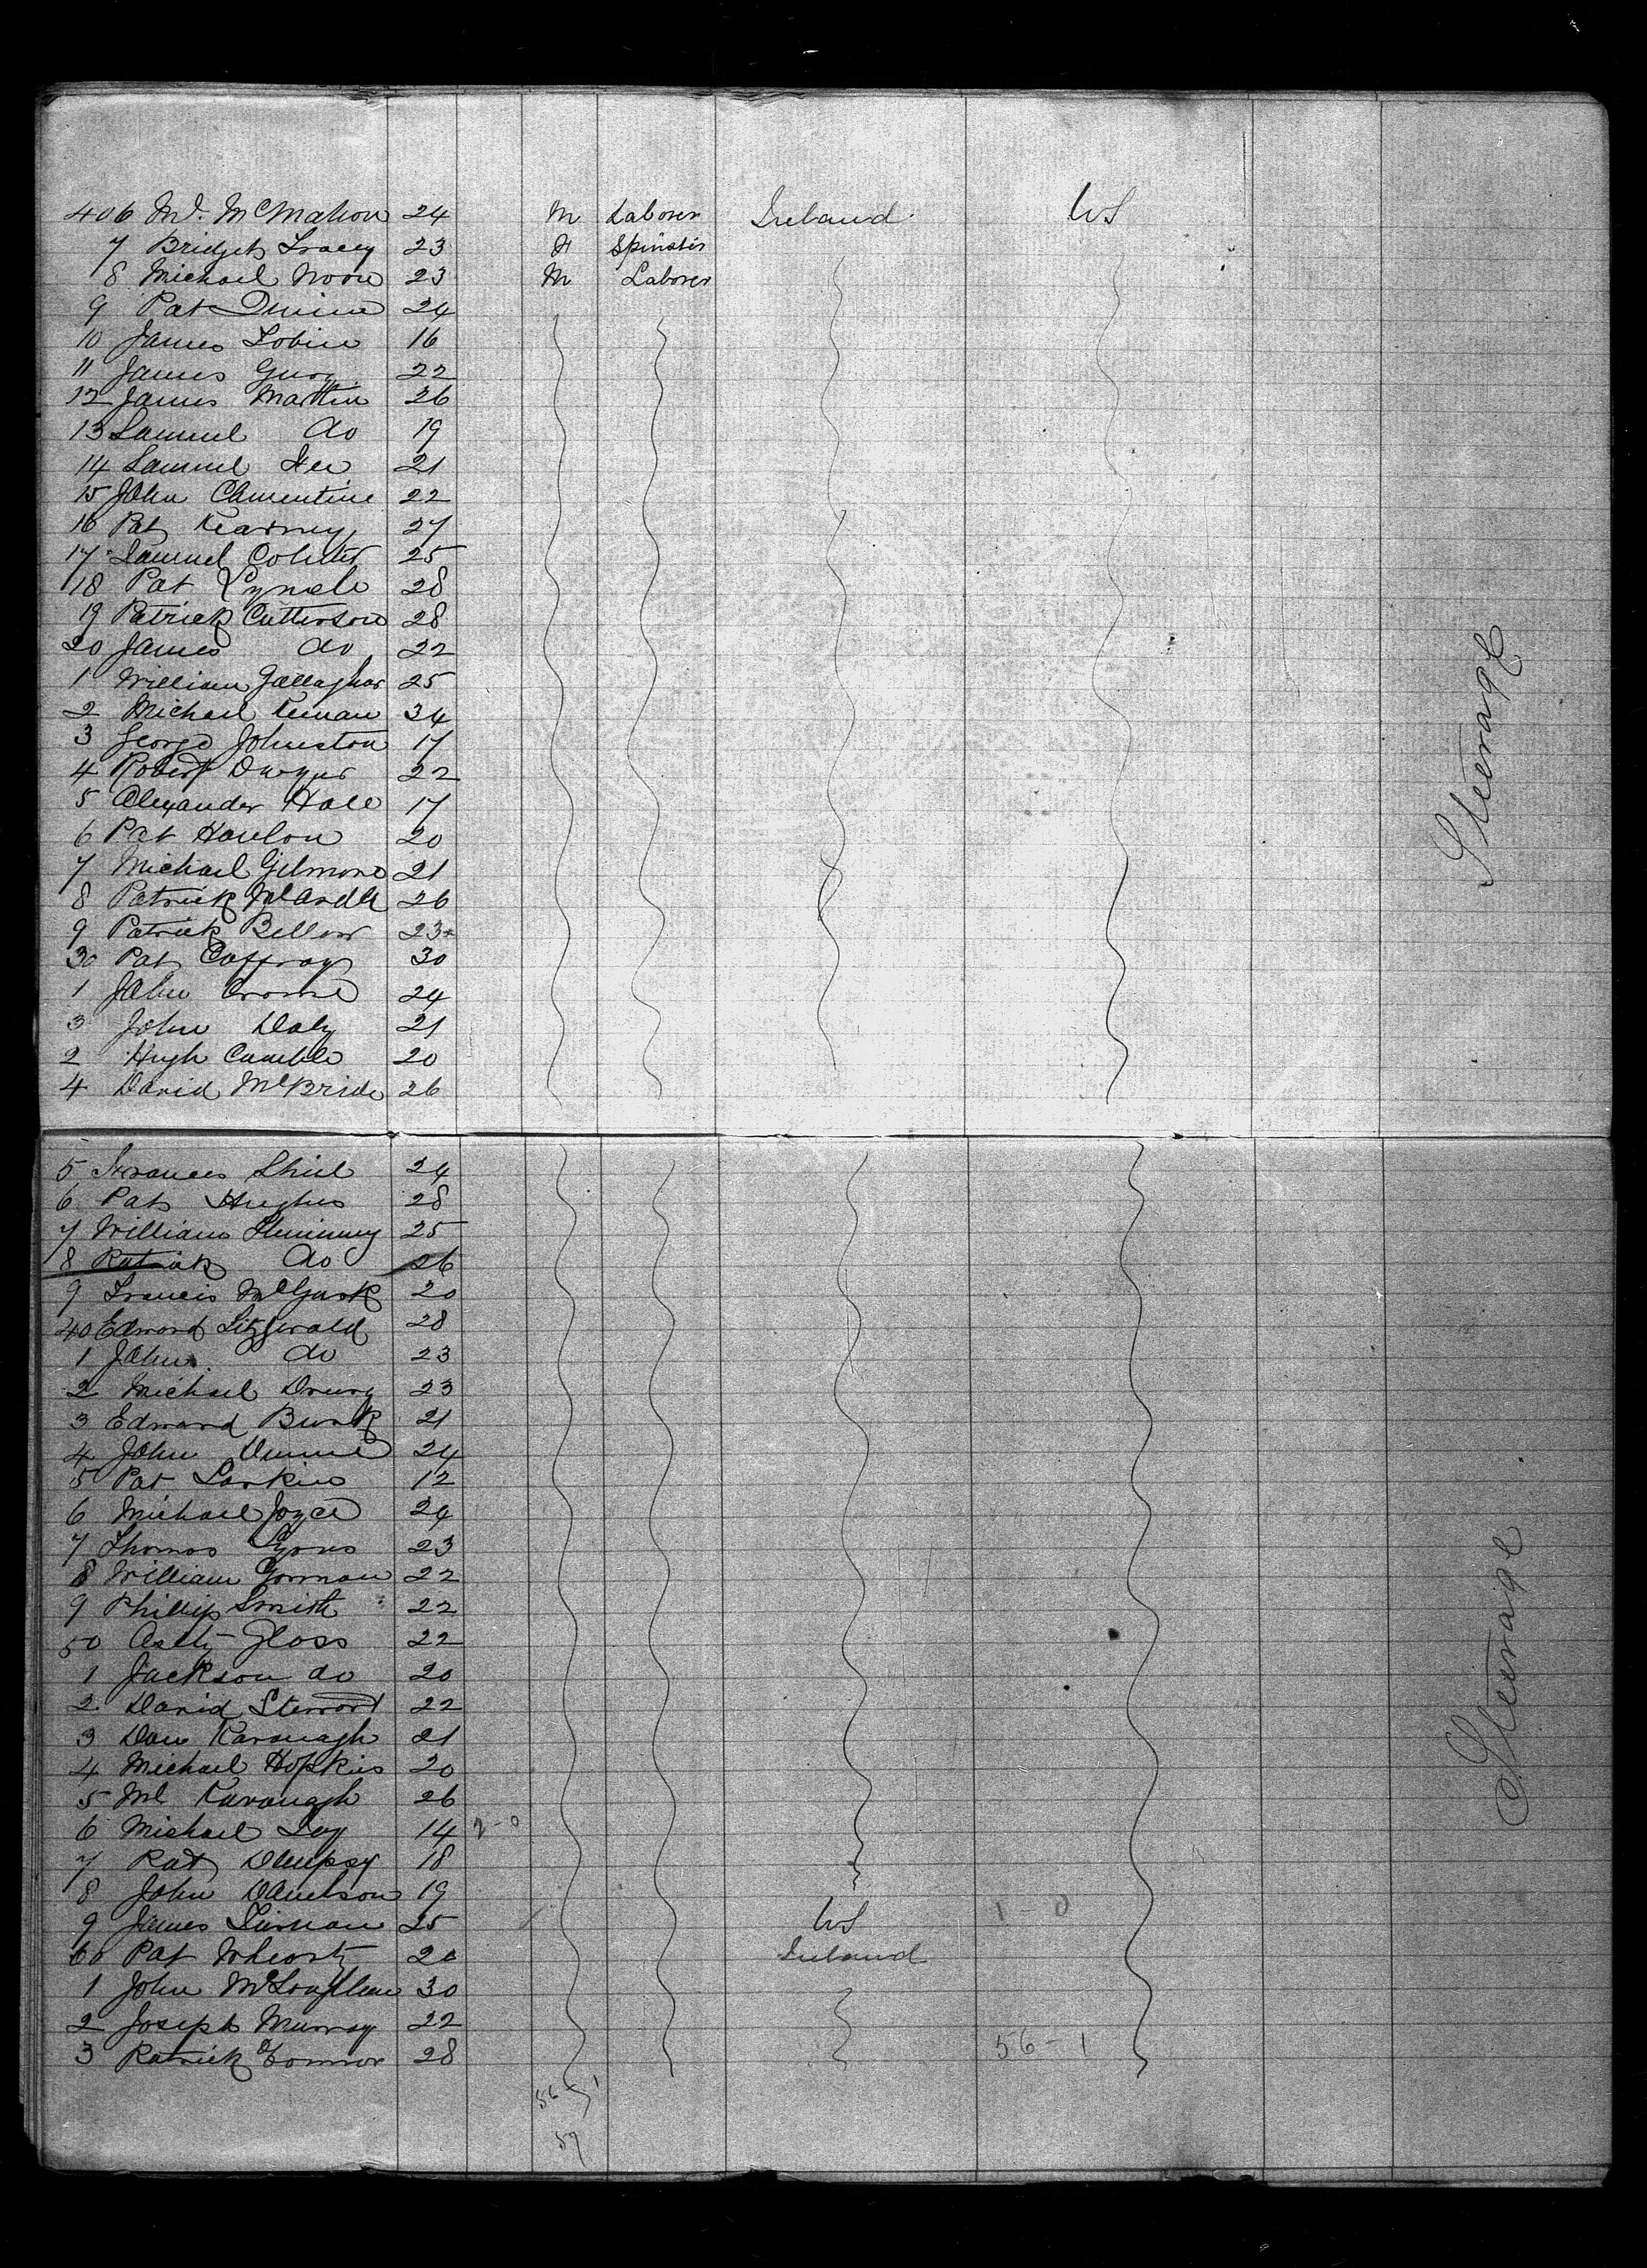 406 Ml. McMahon 24 M Laborer Ireland US
7 Bridget Tracey 23 F Spinster
8 Michael Noon 23 M Laborer
9 Pat Quinn 24
10 James Tobin 16
11 James 22
12 James Martin 26
13 Samuel do 19
14 Samuel Fee 21
15 John Clementine 22
16 Pat Kearney 27
17 Samuel Coulter 25
18 Pat Lynch 28
19 Patrick Cutterson 28
20 James do 22
1 William Gallagher 25
2 Michael Kernan 34
3 George Johnston 17
4 Robert Dwyer 22
5 Alexander Hall 17
6 Pat Hanlon 20
7 Michael Gilmore 21
8 Patrick McArdle 26
9 Patrick Bellew 23
30 Pat Caffray 30
1 John 24
3 John Daly 21
2 Hugh Camble 20
4 David McBride 26
Steerage
5 Frances Shiel 24
6 Pat Hughes 28
7 William Flemming 25
8 Patrick do 26
9 Francis McGurk 20
40 Edward Fitzgerald 28
1 John do 23
2 Michael Drury 23
3 Edward Burk 21
4 John Dunne 24
5 Pat Larkin 12
6 Michael Joyce 24
7 Thomas Lyons 23
8 William Gorman 22
9 Phillip Smith 22
50 Glass 22
1 Jackson do 20
2 David Stewart 22
3 Dan Kavanagh 21
4 Michael Hopkins 20
5 Ml Kavanagh 26
6 Michael Loy 14 2-0
7 Pat Dempsy 18
8 John Danelson 19
9 James Tiernan 25 US 1-0
60 Pat 20 Ireland
1 John McLoughlin 30
2 Joseph Murray 22
3 Patrick O'Connor 28 56-1
56-1
57
Steerage